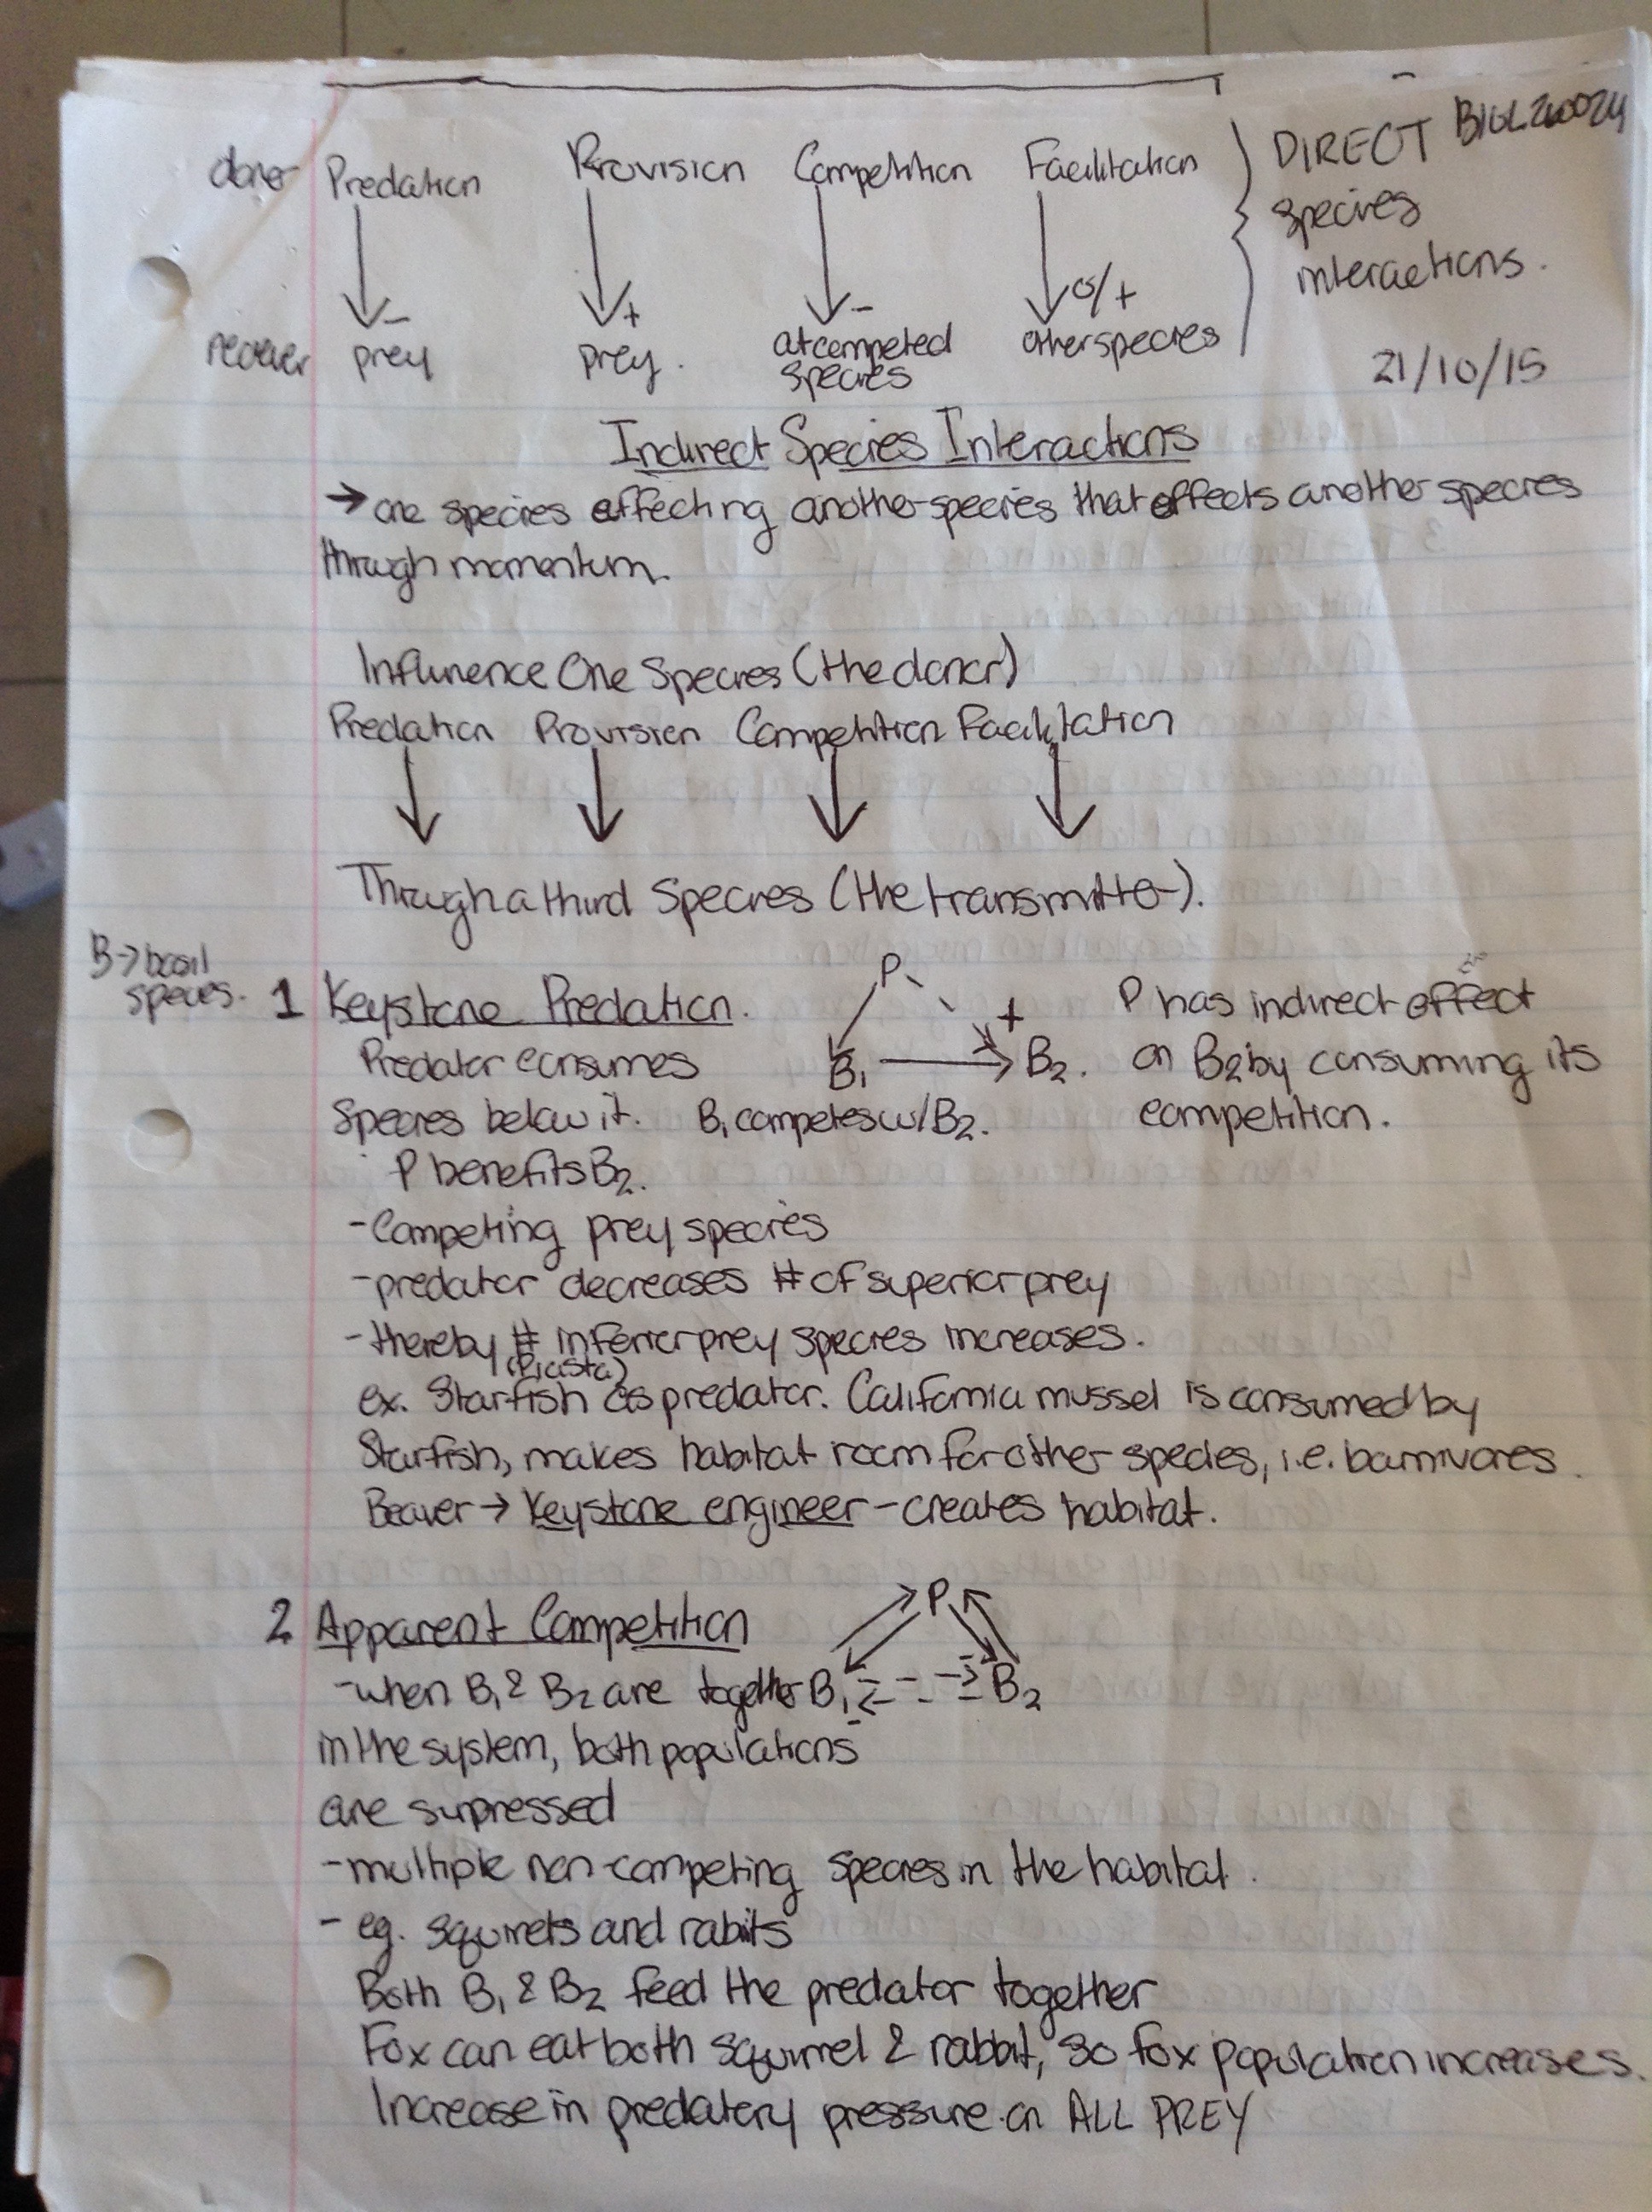 donor Predation Provision Competition Facilitation DIRECT
species
interactions.
- + - 0/+
receiver prey prey. outcompeted other species
species
21/10/15
Indirect Species Interactions
→ one species affecting another species that effects another species
through momentum.
Influnence One Species (the donor)
Predation Provision Competition Facilitation
Through a third Species (the transmitter).
B→ basil
species.
1 Keystone Predation. P P has indirect effect
+
Predator consumes B1 B2. on B2 by consuming its
Species below it. B1 competes w/ B2. competition.
P benefits B2.
- Competing prey species
- predator decreases # of superior prey
- thereby # inferior prey species increases.
ex. Starfish as predator. California mussel is consumed by
Starfish, makes habitat room for other species, i.e. barnivores.
Beaver → Keystone engineer - creates habitat.
2 Apparent Competition P
- when B1 & B2 are together B1 B2
in the system, both populations
are surpressed
- multiple non-competing species in the habitat.
- eg. squirrels and rabits
Both B1 & B2 feed the predator together
Fox can eat both squirrel & rabbit, so fox population increases.
Increase in predatery pressure on ALL PREY